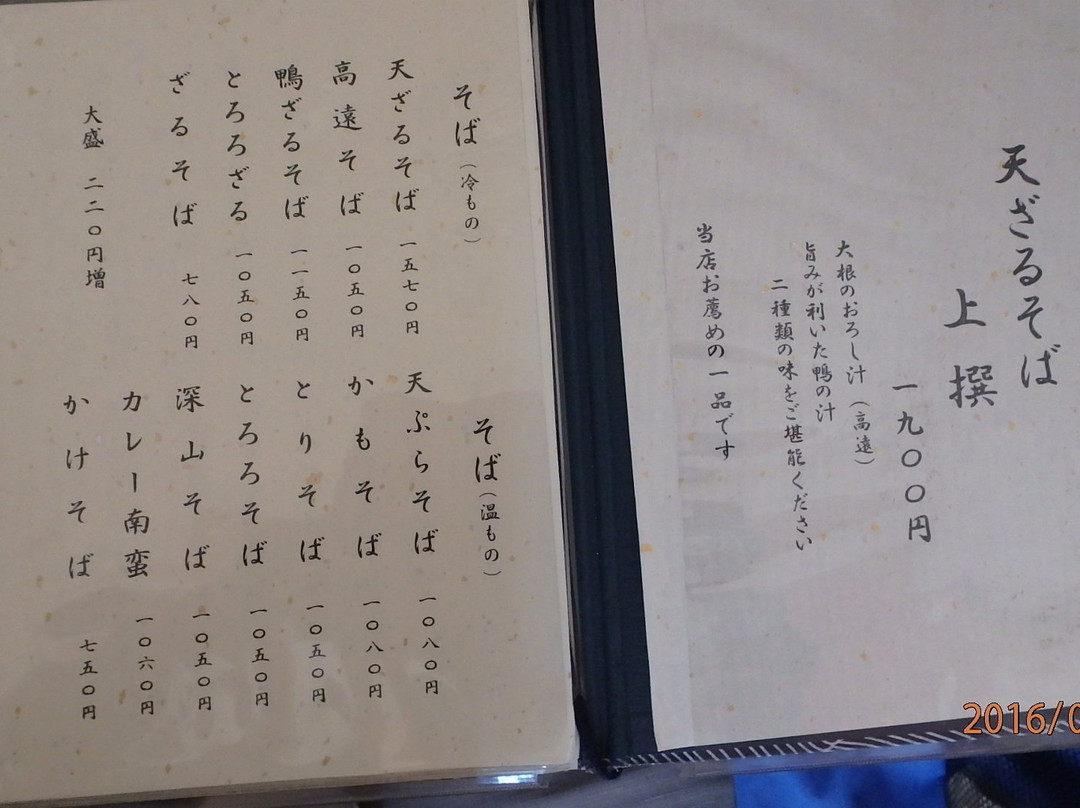 天ざるそば
上撰
一九〇〇円
大根のおろし汁（高遠）
旨みが利いた鴨の汁
二種類の味をご堪能ください
当店お薦めの一品です
そば（冷もの）
天ざるそば 一五七〇円
高遠そば 一〇五〇円
鴨ざるそば 一一五〇円
とろろざる 一〇五〇円
ざるそば 七八〇円
大盛 二二〇円増
そば（温もの）
天ぷらそば 一〇八〇円
かもそば 一〇八〇円
とりそば 一〇五〇円
とろろそば 一〇五〇円
深山そば 一〇五〇円
カレー南蛮 一〇六〇円
かけそば 七五〇円
2016/0